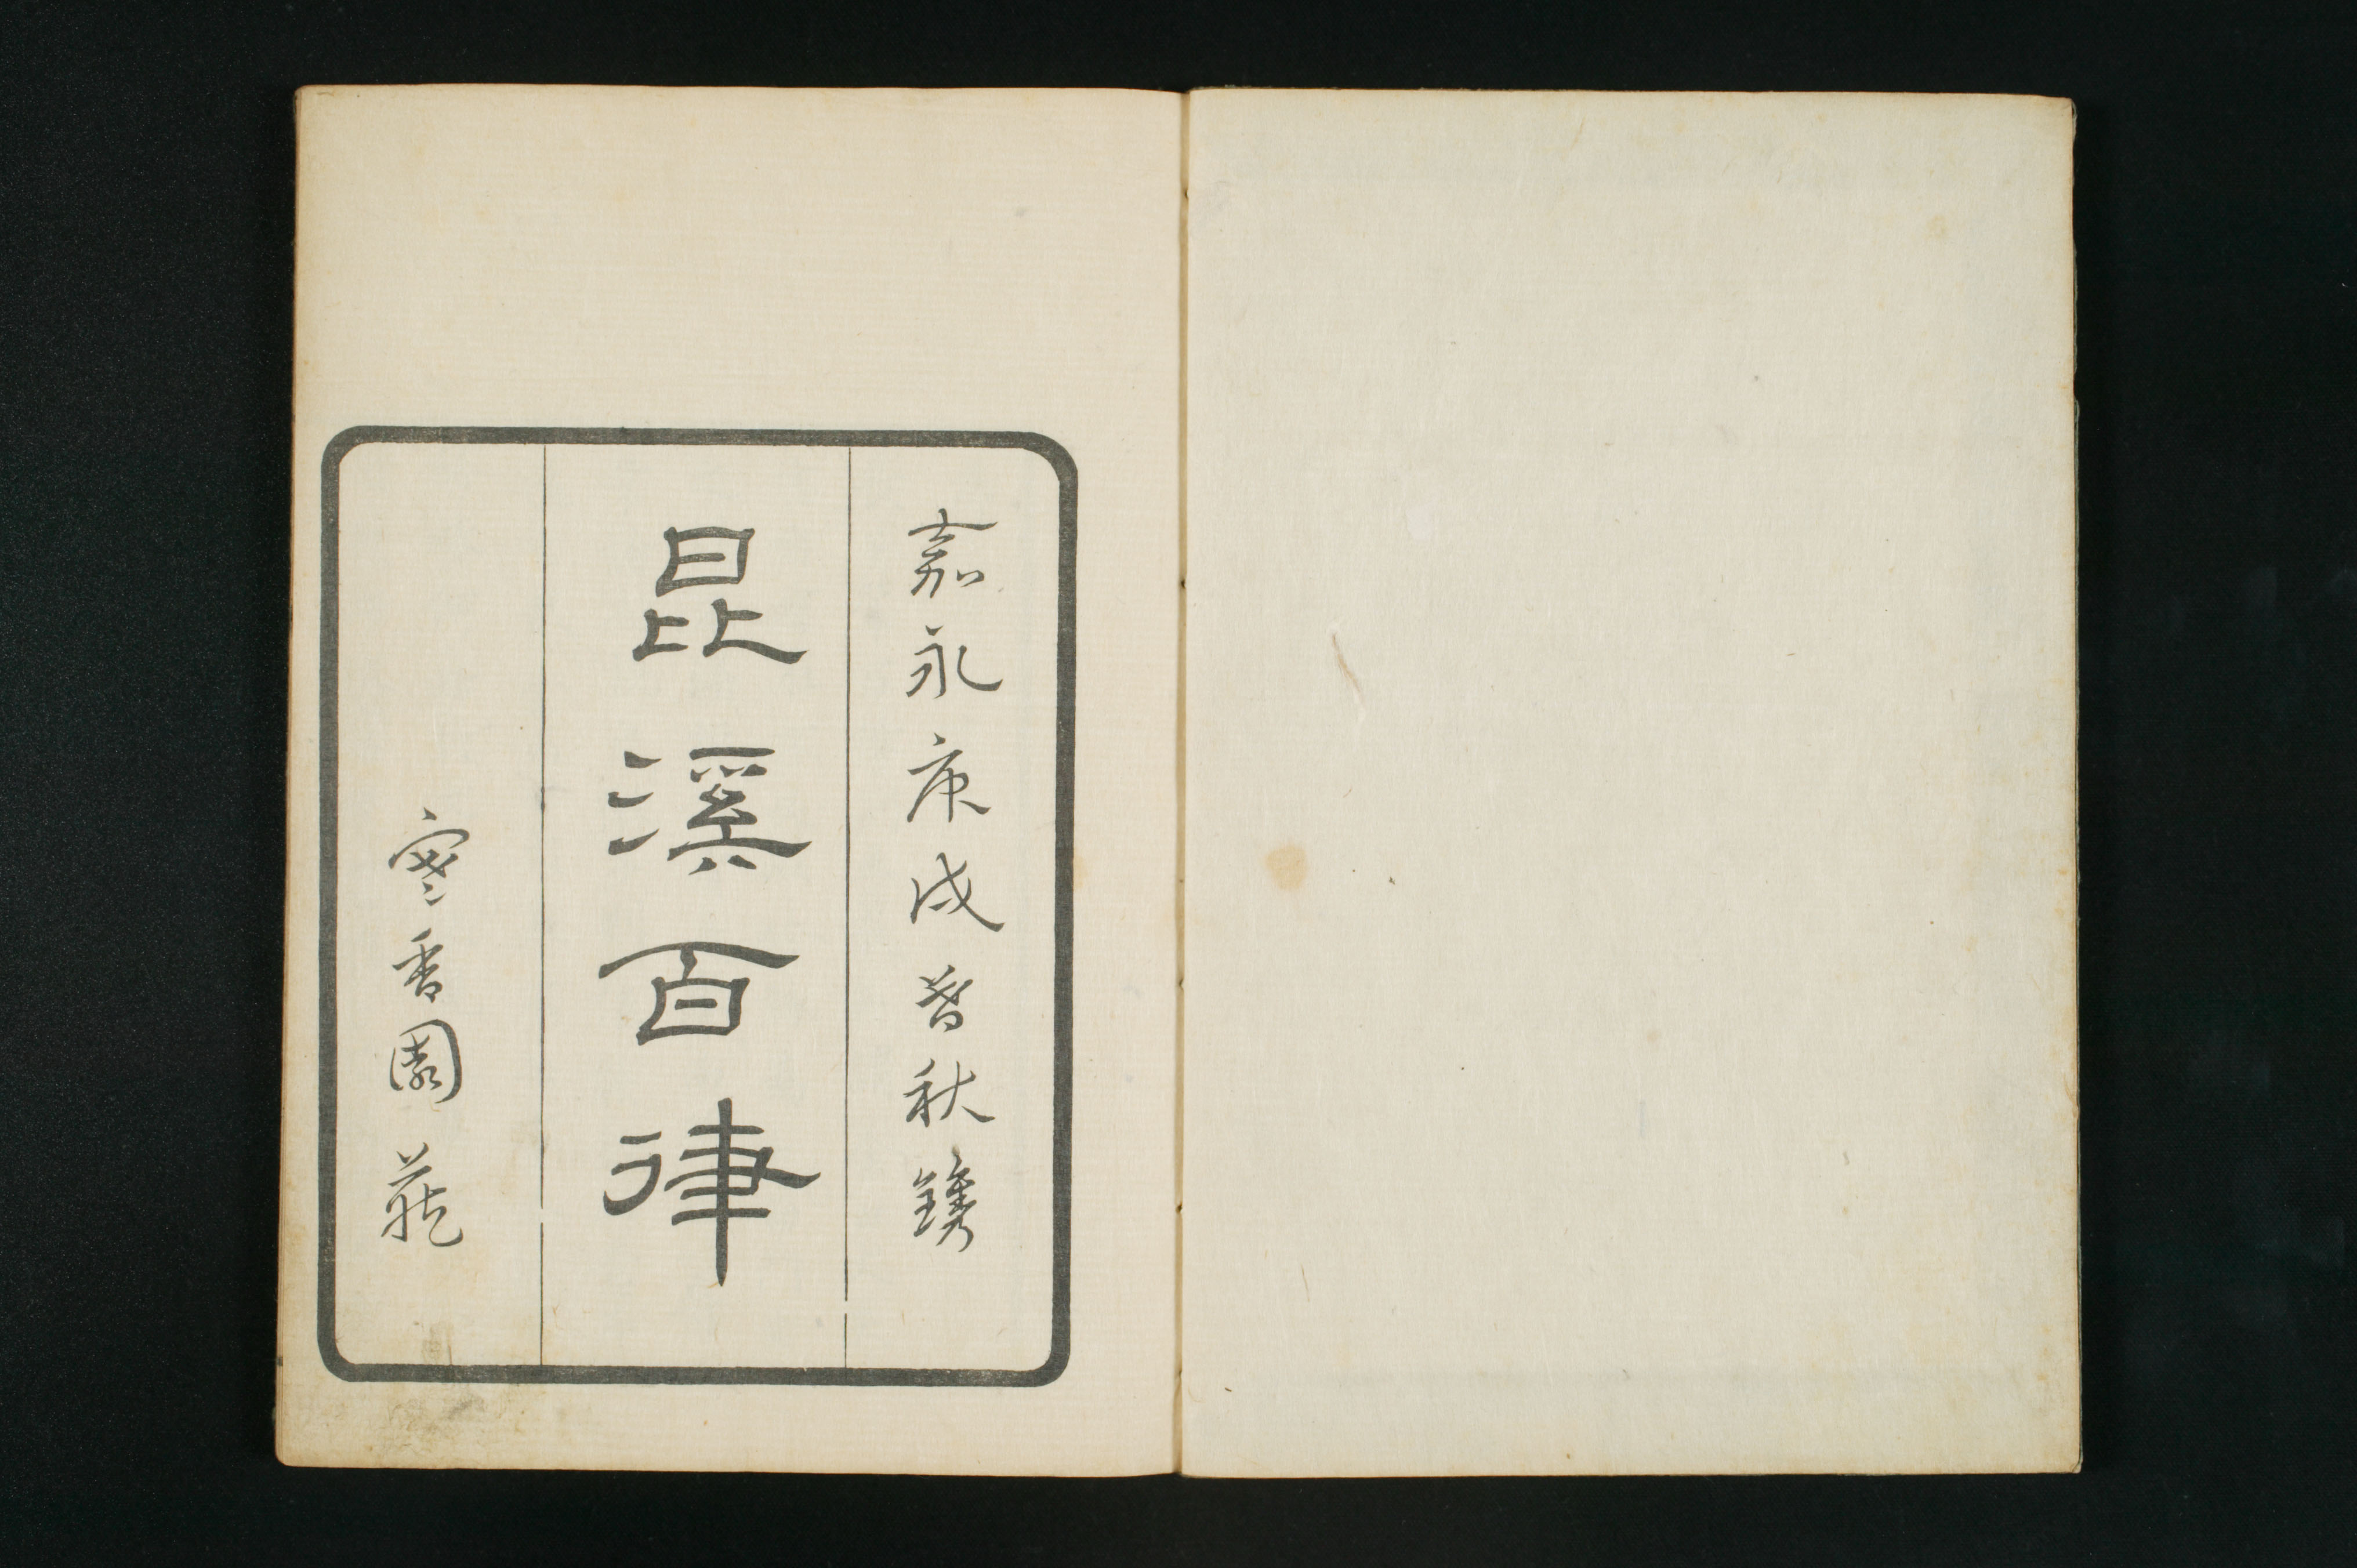 嘉永庚戌晉秋鐫
昆溪百律
寒香園藏